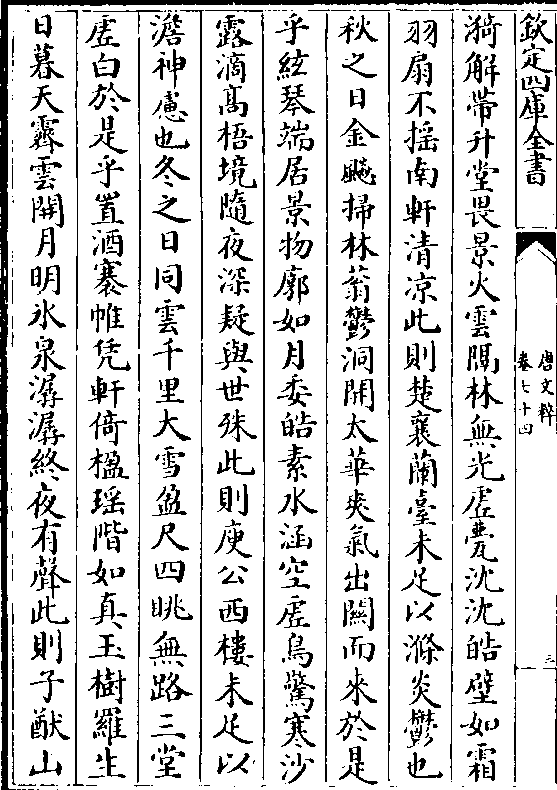 欽定四庫全書
唐文粹
卷七十四
三
漪解帶升堂畏景火雲隔林無光虛甍沈沈皓壁如霜
羽扇不揺南軒清涼此則楚襄蘭臺未足以滌炎鬱也
秋之日金飇掃林蓊鬱洞開太華爽氣出關而來於是
乎絃琴端居景物廓如月委皓素水涵空虛鳥驚寒沙
露滴髙梧境隨夜深疑與世殊此則庾公西樓未足以
澹神慮也冬之日同雲千里大雪盈尺四眺無路三堂
虛白於是乎置酒褰帷凭軒倚楹瑶階如真玉樹羅生
日暮天霽雲開月明氷泉潺潺終夜有聲此則子猷山